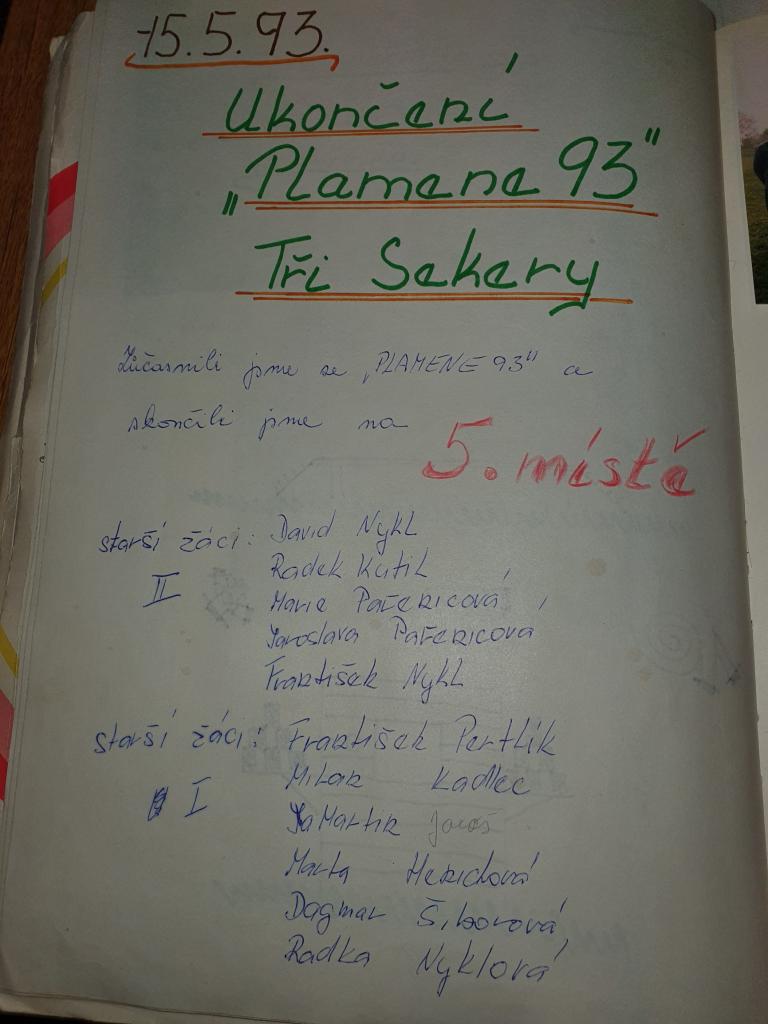 15.5.93.
Ukončení
„Plamene 93"
Tři Sekery
Zúčasnili jsme se „PLAMENE 93" a
skončili jsme na
5. místě
starší žáci: David Nykl
II Radek Kutil
Marie Pařenicová
Jaroslava Pařenicová
František Nykl
starší žáci: František Pertlík
I Milan Kadlec
Martin Jaroš
Marta Henichová
Dagmar Šiborová
Radka Nyklová